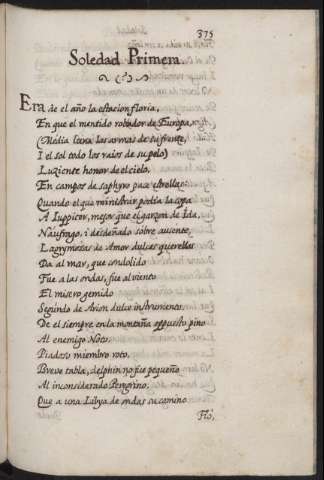 375
Soledad Primera.
Era de el año la estacion floria,
En que el mentido robador de Europa,
(Media luna las armas de su frente,
I el sol todo los raios de su pelo)
Luziente honor de el cielo,
En campos de saphyro pace estrellas:
Quando el que ministrar podia la copa
A Iuppiter, mejor que el garzon de Ida,
Naufrago, i desdeñado sobre ausente,
Lagrymosas de Amor dulces querellas
Da al mar, que condolido
Fue a las ondas, fue al viento
El misero gemido
Segundo de Arion dulce instrumento.
De el siempre en la montaña oppuesto pino
Al enemigo Noto,
Piadoso miembro roto,
Breve tabla, delphin no fue pequeño
Al inconsiderado Peregrino,
Que a una Libya de ondas su camino
Fió,